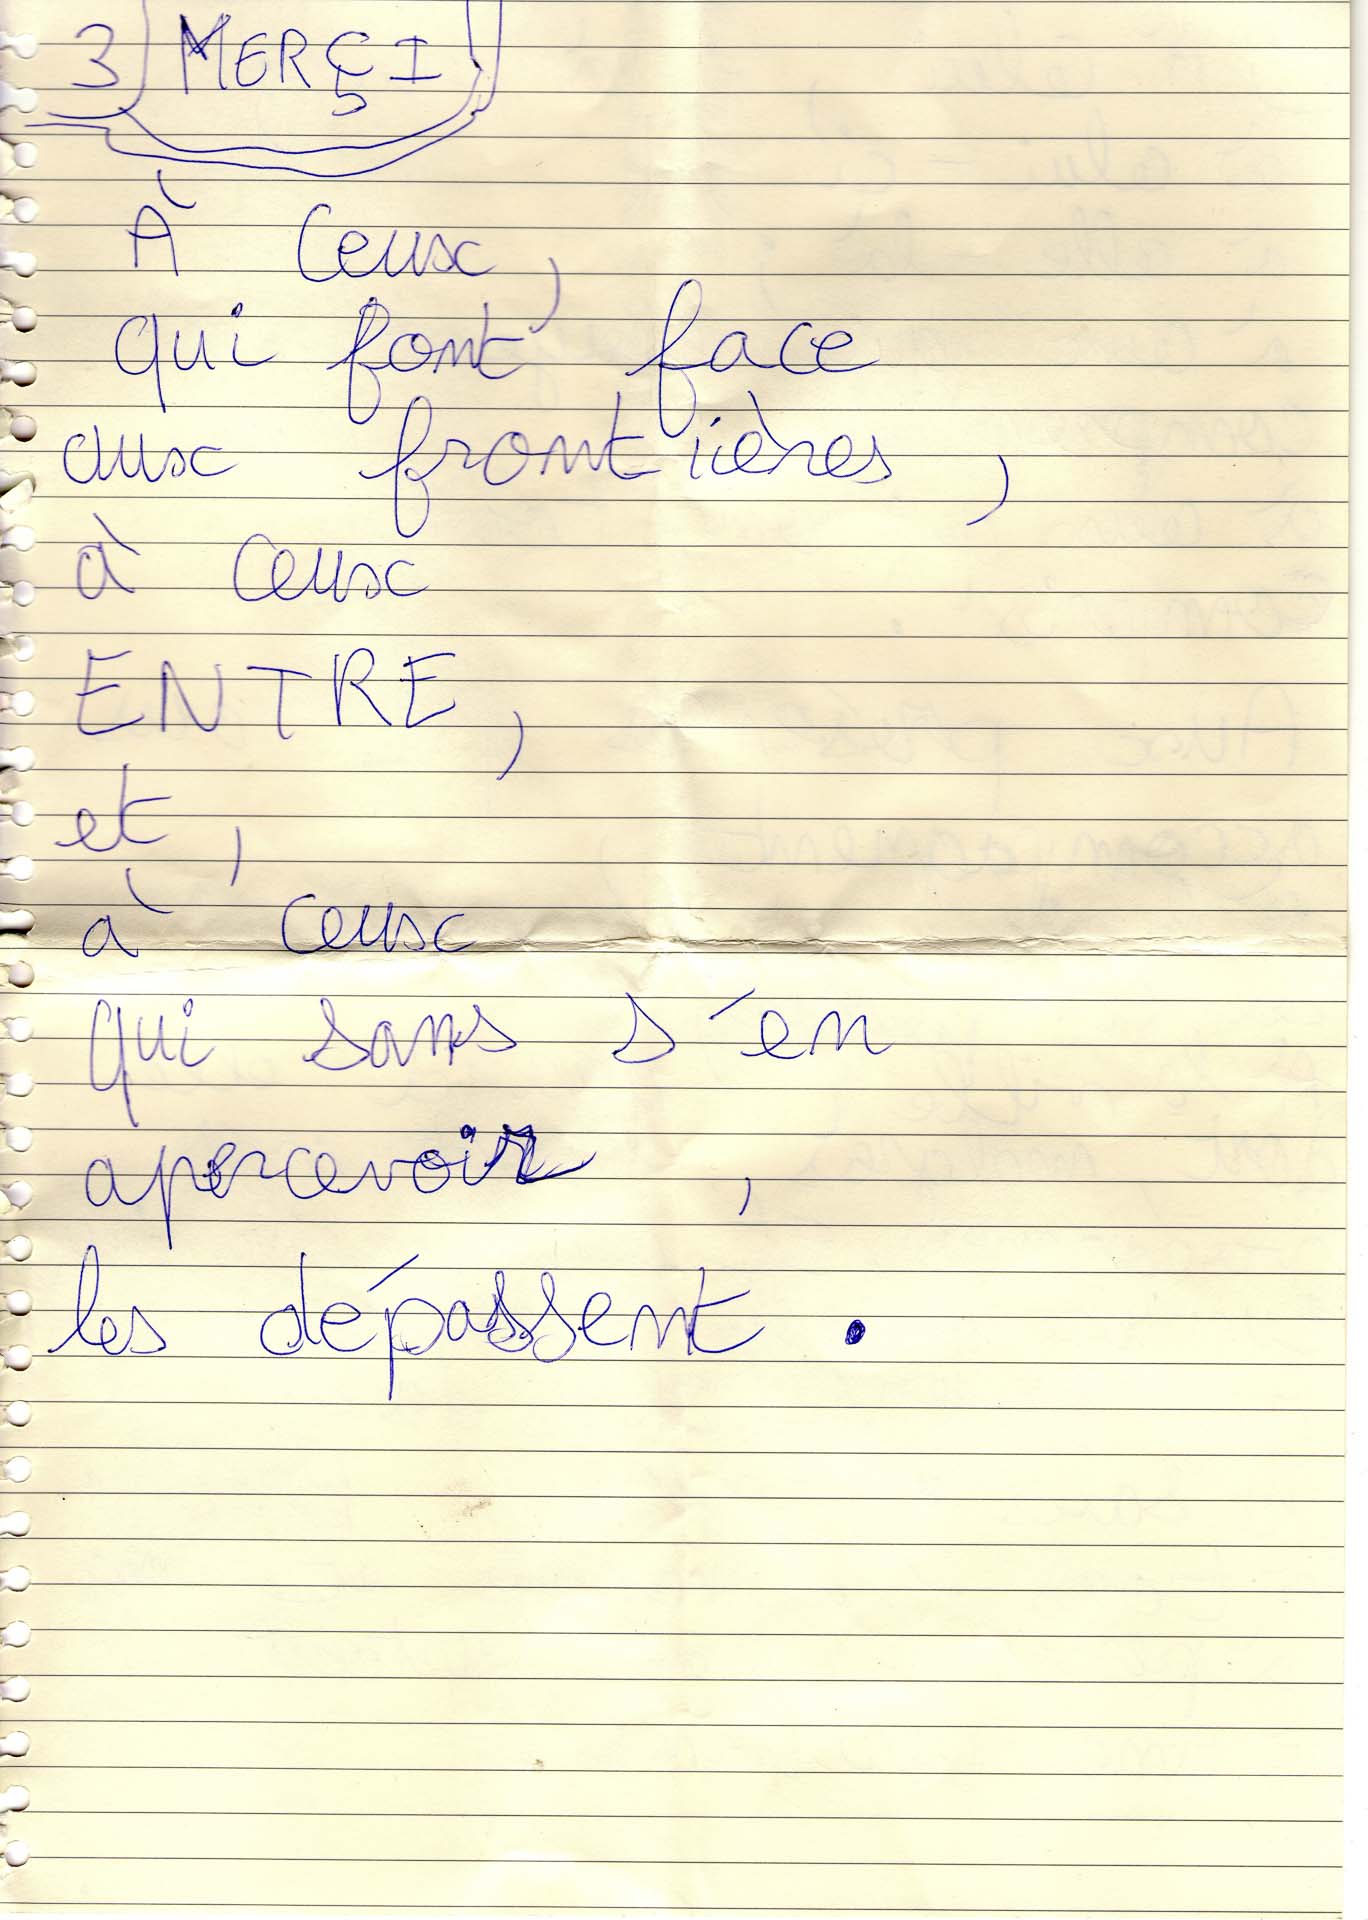 3) MERÇI
À Ceux,
qui font face
aux frontières,
à ceux
ENTRE,
et,
à ceux
qui sans s'en
apercevoir,
les dépassent.